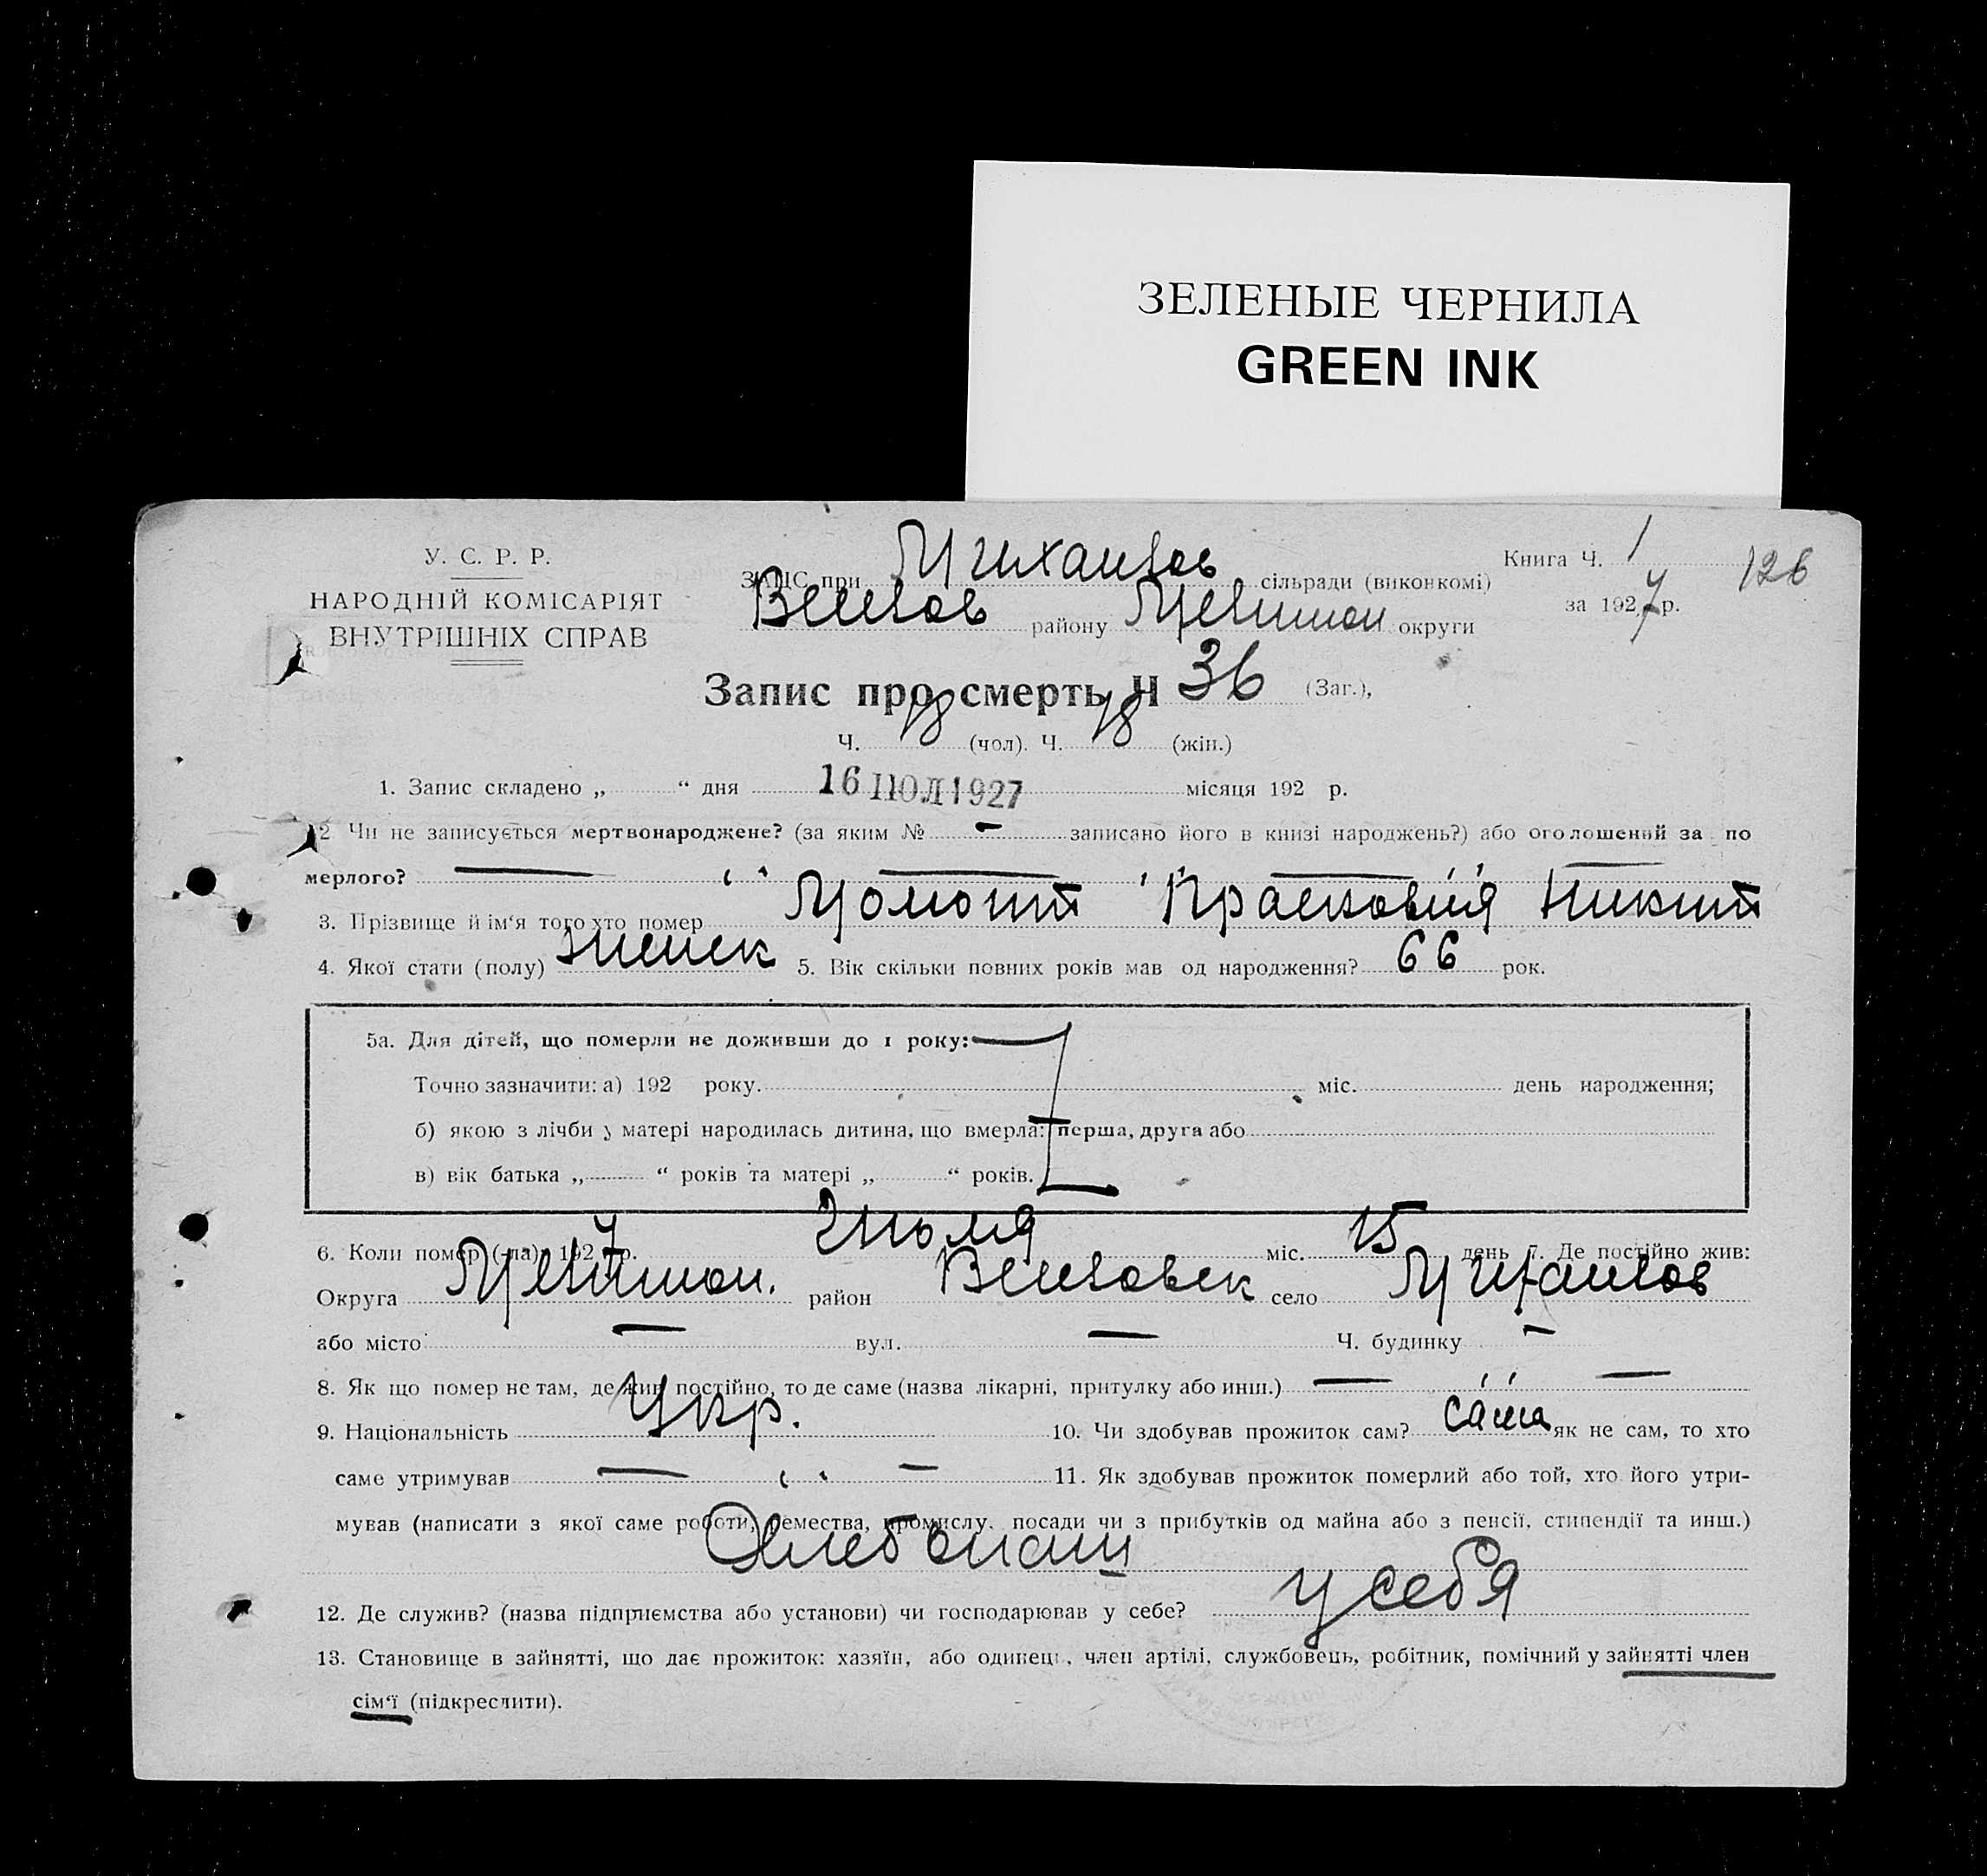 ЗЕЛЕНЫЕ ЧЕРНИЛА
GREEN INK
У. С. Р. Р.
НАРОДНІЙ КОМІСАРІЯТ
ВНУТРІШНІХ СПРАВ
ЗАПИС при Михайлов сільради (виконкомі)
района району округи
Книга Ч. 1
126
за 1927 р.
Запис про смерть Ч 36 (Заг.),
Ч. 18 (чол). Ч. 18 (жін.)
1. Запис складено „ “ дня 16 ІЮЛ 1927 місяця 192 р.
2 Чи не записується мертвонароджене? (за яким № – записано його в книзі народжень?) або оголошений за по
мерлого? —
3. Прізвище й ім‘я того хто помер Прасковия Никит
4. Якої стати (полу) женск 5. Вік скільки повних років мав од народження? 66 рок.
5а. Для дітей, що померли не доживши до 1 року:
Точно зазначити: а) 192 року. міс. день народження;
б) якою з лічби у матері народилась дитина, що вмерла: перша, друга або
в) вік батька „ “ років та матері „ “ років.
6. Коли помер (-ла) 1927 р. Июля міс. 15 день 7. Де постійно жив:
Округа район село Михайлов
або місто — вул. — Ч. будинку –
8. Як що помер не там, де жив постійно, то де саме (назва лікарні, притулку або инш.) — —
9. Національність Укр. 10. Чи здобував прожиток сам? сама як не сам, то хто
саме утримував — – 11. Як здобував прожиток померлий або той, хто його утри-
мував (написати з якої саме роботи, ремества, промислу, посади чи з прибутків од майна або з пенсії, стипендії та инш.)
Хлебопаш
12. Де служив? (назва підприємства або установи) чи господарював у себе? у себя
13. Становище в зайнятті, що дає прожиток: хазяїн, або одинець, член артілі, службовець, робітник, помічний у зайнятті член
сім‘ї (підкреслити).